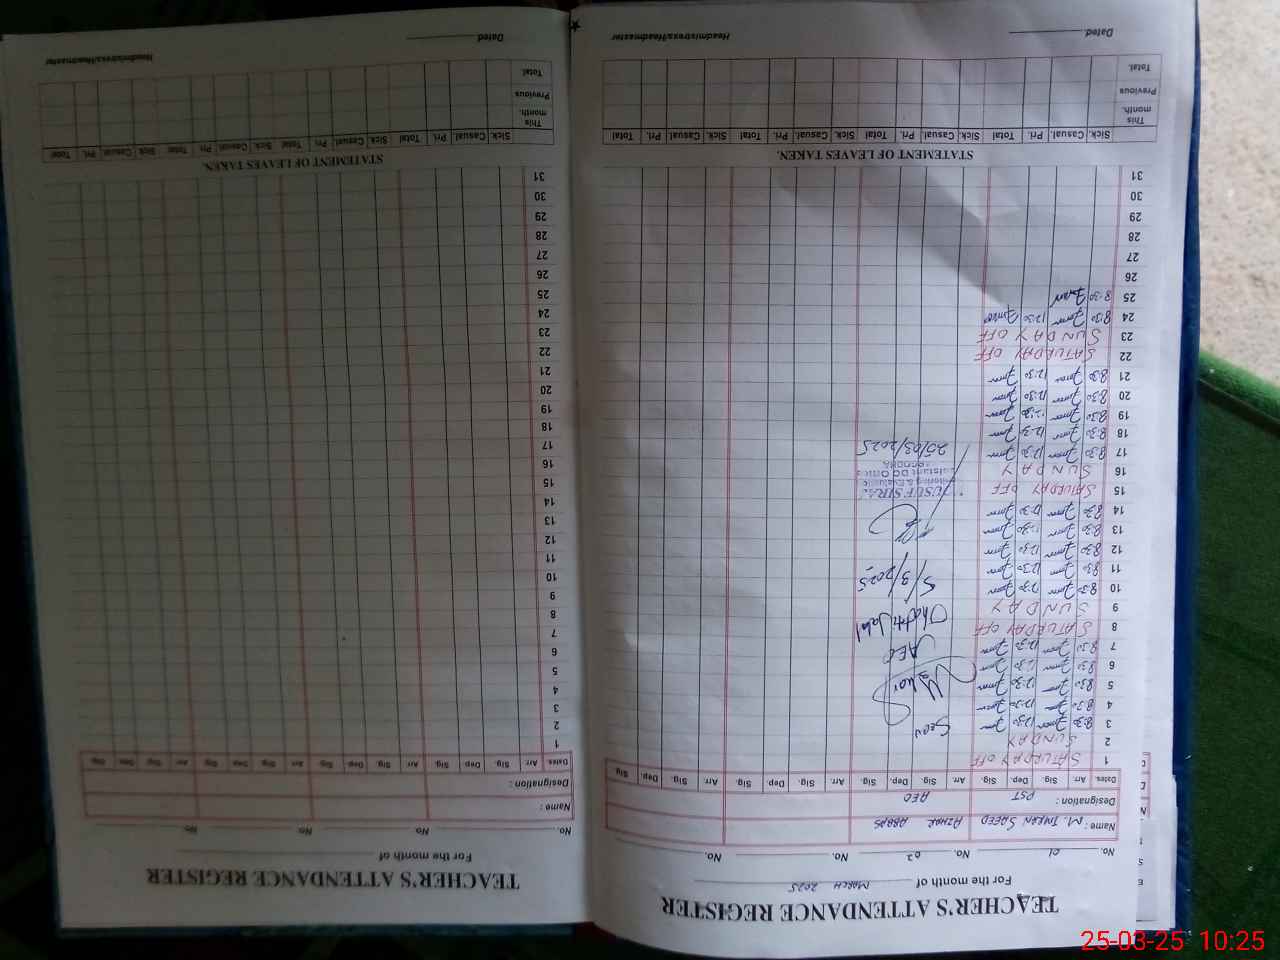 TEACHER'S ATTENDANCE REGISTER
For the month of MARCH 2025
No. 01 No. 02 No. No.
Name: M. IMRAN SAEED AZHAR ABBAS
Designation: PST AEO
Dates. Arr Sig. Dep. Sig. Arr Sig. Dep Sig. Arr Sig. Dep. Sig. Arr Sig. Dep. Sig.
1 SATURDAY OFF
2 SUNDAY
3 8:30 12:30 Seen
4 8:30 12:30
5 8:30 12:30
6 8:30 12:30
7 8:30 12:30 AEO
8 SATURDAY OFF
9 SUNDAY 5/3/2025
10 8:30 12:30
11 8:30 12:30
12 8:30 12:30
13 8:30 12:30
14 8:30 12:30
15 SATURDAY OFF
16 SUNDAY
17 8:30 12:30 25/03/2025
18 8:30 12:30
19 8:30 12:30
20 8:30 12:30
21 8:30 12:30
22 SATURDAY OFF
23 SUNDAY OFF
24 8:30 12:30
25 8:30
26
27
28
29
30
31
STATEMENT OF LEAVES TAKEN.
Sick. Casual. Pri. Total Sick. Casual. Pri. Total Sick. Casual. Pri. Total Sick. Casual. Pri. Total
This month.
Previous
Total.
Dated Headmistress/Headmaster
TEACHER'S ATTENDANCE REGISTER
For the month of
No. No. No. No.
Name:
Designation:
Dates. Arr. Sig. Dep. Sig. Arr Sig. Dep Sig. Arr Sig. Dep. Sig. Arr Sig. Dep. Sig.
1
2
3
4
5
6
7
8
9
10
11
12
13
14
15
16
17
18
19
20
21
22
23
24
25
26
27
28
29
30
31
STATEMENT OF LEAVES TAKEN.
Sick. Casual. Pri. Total Sick. Casual. Pri. Total Sick. Casual. Pri. Total Sick Casual Pri. Total
This month.
Previous
Total.
Dated Headmistress/Headmaster
25-03-25 10:25